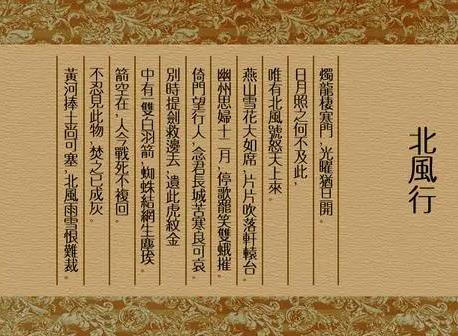 北風行
燭龍棲寒門，光曜猶旦開。
日月照之何不及此，
唯有北風號怒天上來。
燕山雪花大如席，片片吹落軒轅台。
幽州思婦十二月，停歌罷笑雙蛾摧。
倚門望行人，念君長城苦寒良可哀。
別時提劍救邊去，遺此虎紋金
中有雙白羽箭，蜘蛛結網生塵埃。
箭空在，人今戰死不複回。
不忍見此物，焚之已成灰。
黃河捧土尚可塞，北風雨雪恨難裁。